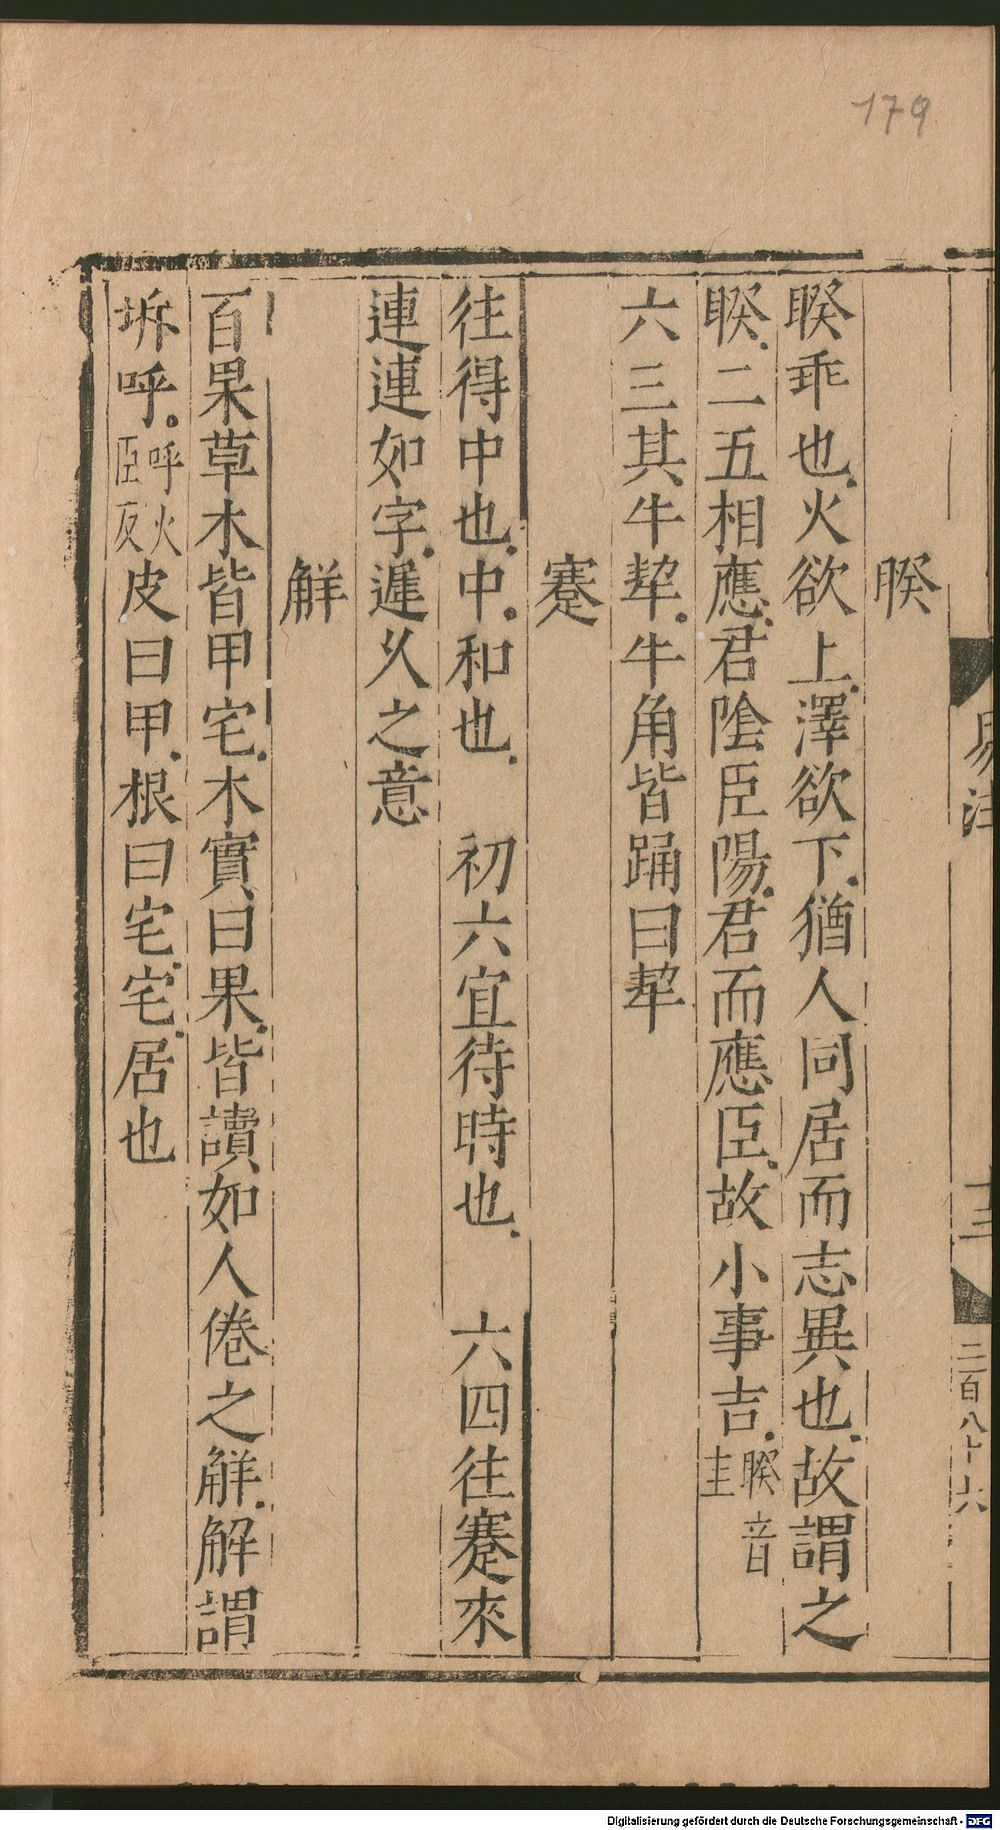 179
易注
十三
二百八十六
睽
睽乖也火欲上澤欲下猶人同居而志異也故謂之
睽二五相應君陰臣陽君而應臣故小事吉睽音圭
六三其牛挈牛角皆踊曰挈
蹇
往得中也中和也 初六宜待時也 六四往蹇來
連連如字遲久之意
解
百果草木皆甲宅木實曰果皆讀如人倦之解解謂
坼呼呼火亞反皮曰甲根曰宅宅居也
Digitalisierung gefördert durch die Deutsche Forschungsgemeinschaft - DFG